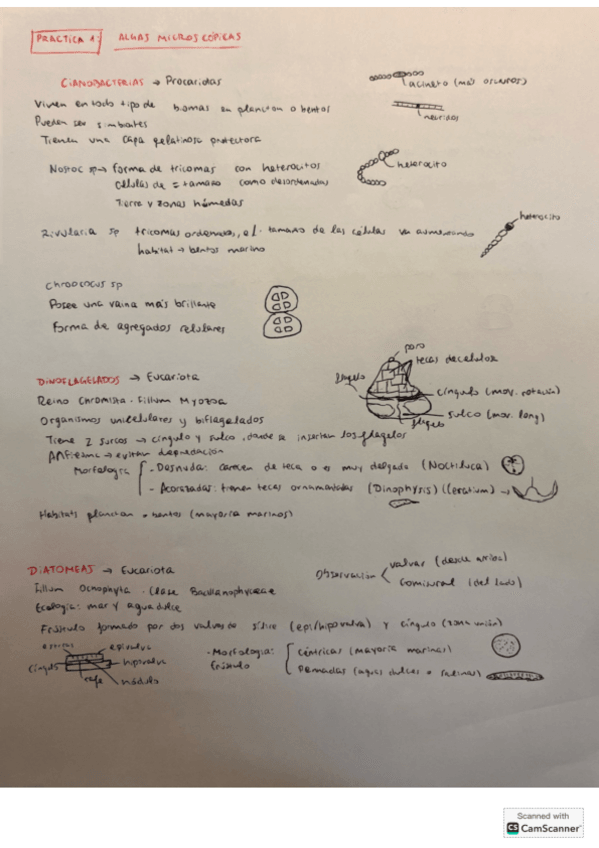 PRACTICA 1: ALGAS MICROSCÓPICAS
CIANOBACTERIAS → Procariotas
acineto (más oscuros)
Viven en todo tipo de biomas en plancton o bentos
neuridos
Pueden ser simbiontes
Tienen una capa gelatinosa protectora
Nostoc sp → forma de tricomas con heterocitos
heterocito
células de = tamaño como desordenadas
Tierra y zonas húmedas
heterocito
Rivularia sp tricomas ordenados, el tamaño de las células va aumentando
habitat → bentos marino
Chroococus sp
Posee una vaina más brillante
Forma de agregados celulares
poro
tecas de celulosa
flagelo
DINOFLAGELADOS → Eucariota
cíngulo (mov. rotación)
Reino Chromista · Fillum Myozoa
sulco (mov. long)
Organismos unicelulares y biflagelados
flagelo
Tiene 2 surcos → cíngulo y sulco, donde se insertan los flagelos
Anfiezma → evitan depredación
Morfología
- Desnuda: carecen de teca o es muy delgada (Noctiluca)
- Acorazadas: tienen tecas ornamentadas (Dinophysis) (Ceratium) →
Habitats plancton o bentos (mayoría marinos)
DIATOMEAS → Eucariota
Observación
valvar (desde arriba)
comisural (del lado)
Fillum Ocrophyta · Clase Bacillariophyceae
Ecología: mar y agua dulce
Frústulo formado por dos valvas de sílice (epi/hipovalva) y cíngulo (zona unión)
estrías
epivalva
cíngulo
hipovalva
rafe
nódulo
- Morfología: frústulo
céntricas (mayoría marinas)
Pennadas (aguas dulces o salinas)
Scanned with
CS CamScanner